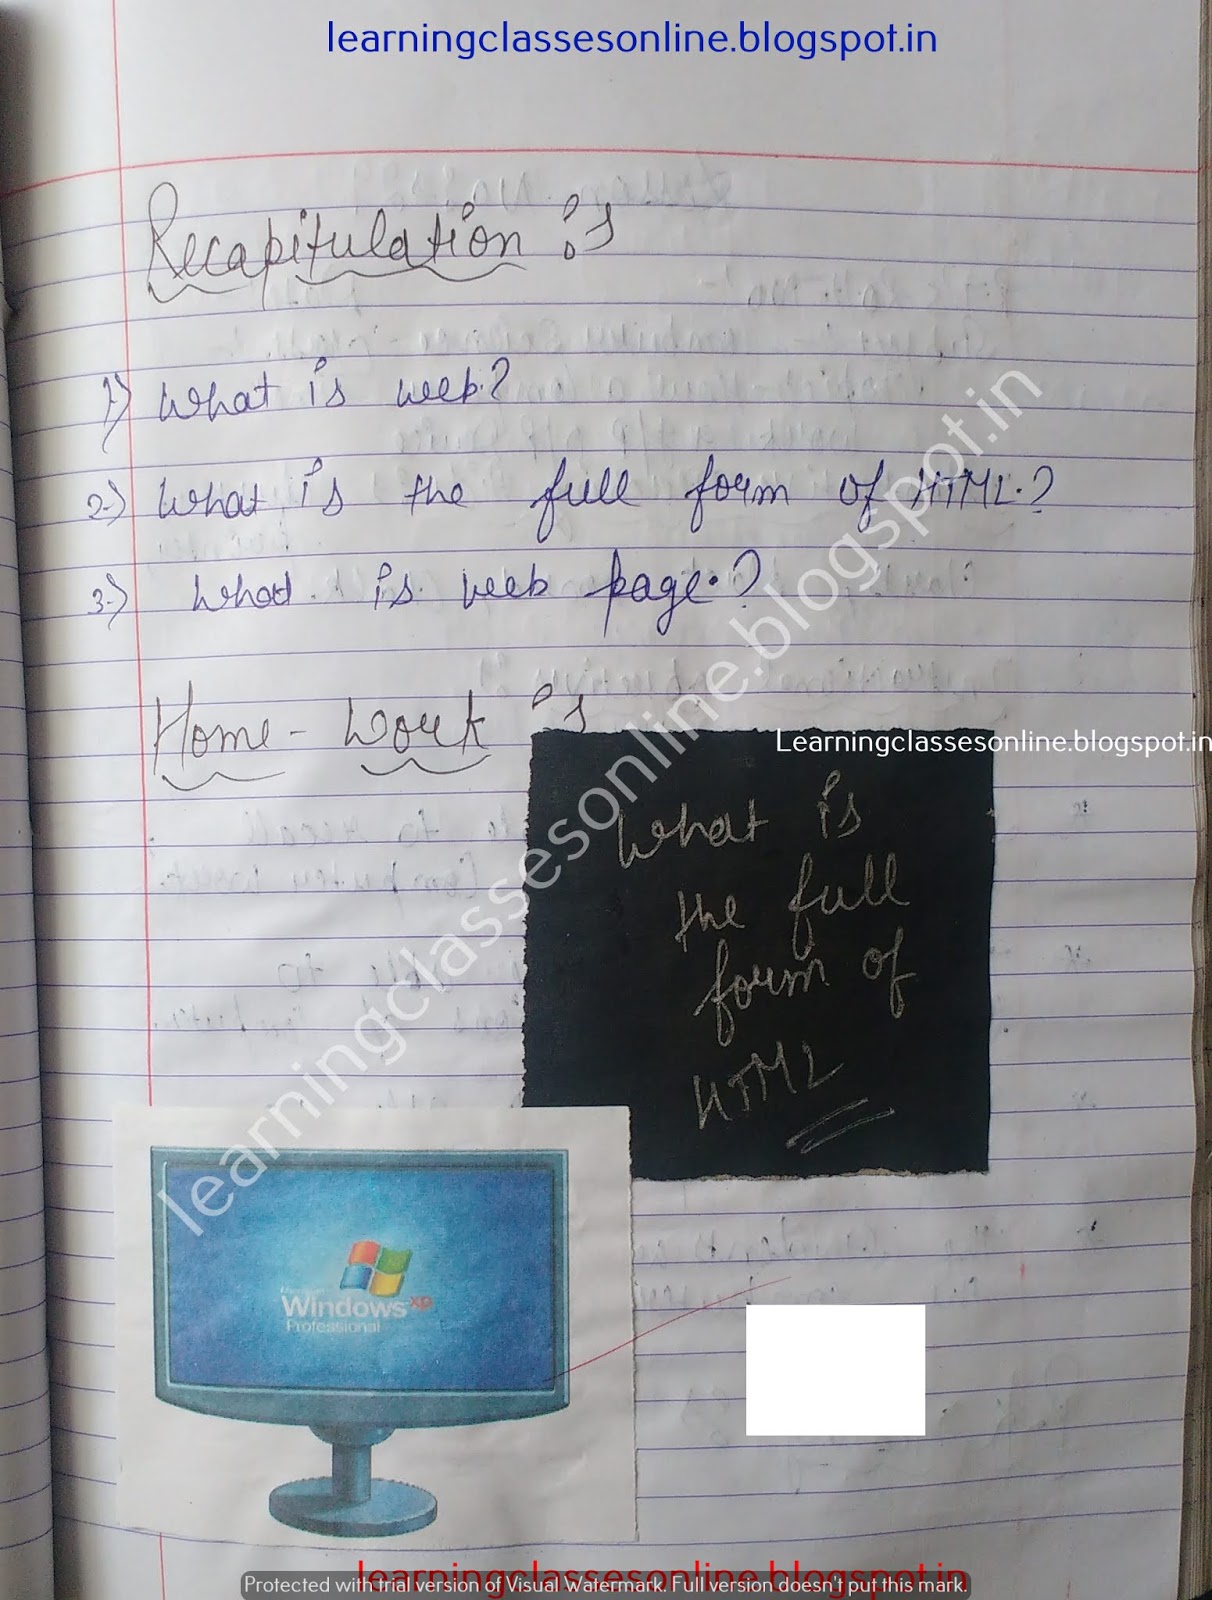 learningclassesonline.blogspot.in
Recapitulation :-
1) What is web.?
2.) What is the full form of HTML.?
3.) What is web page.?
Home-Work :-
Learningclassesonline.blogspot.in
What is
the full
form of
HTML
learningclassesonline.blogspot.in
Microsoft
Windows xp
Professional
learningclassesonline.blogspot.in
Protected with trial version of Visual Watermark. Full version doesn't put this mark.